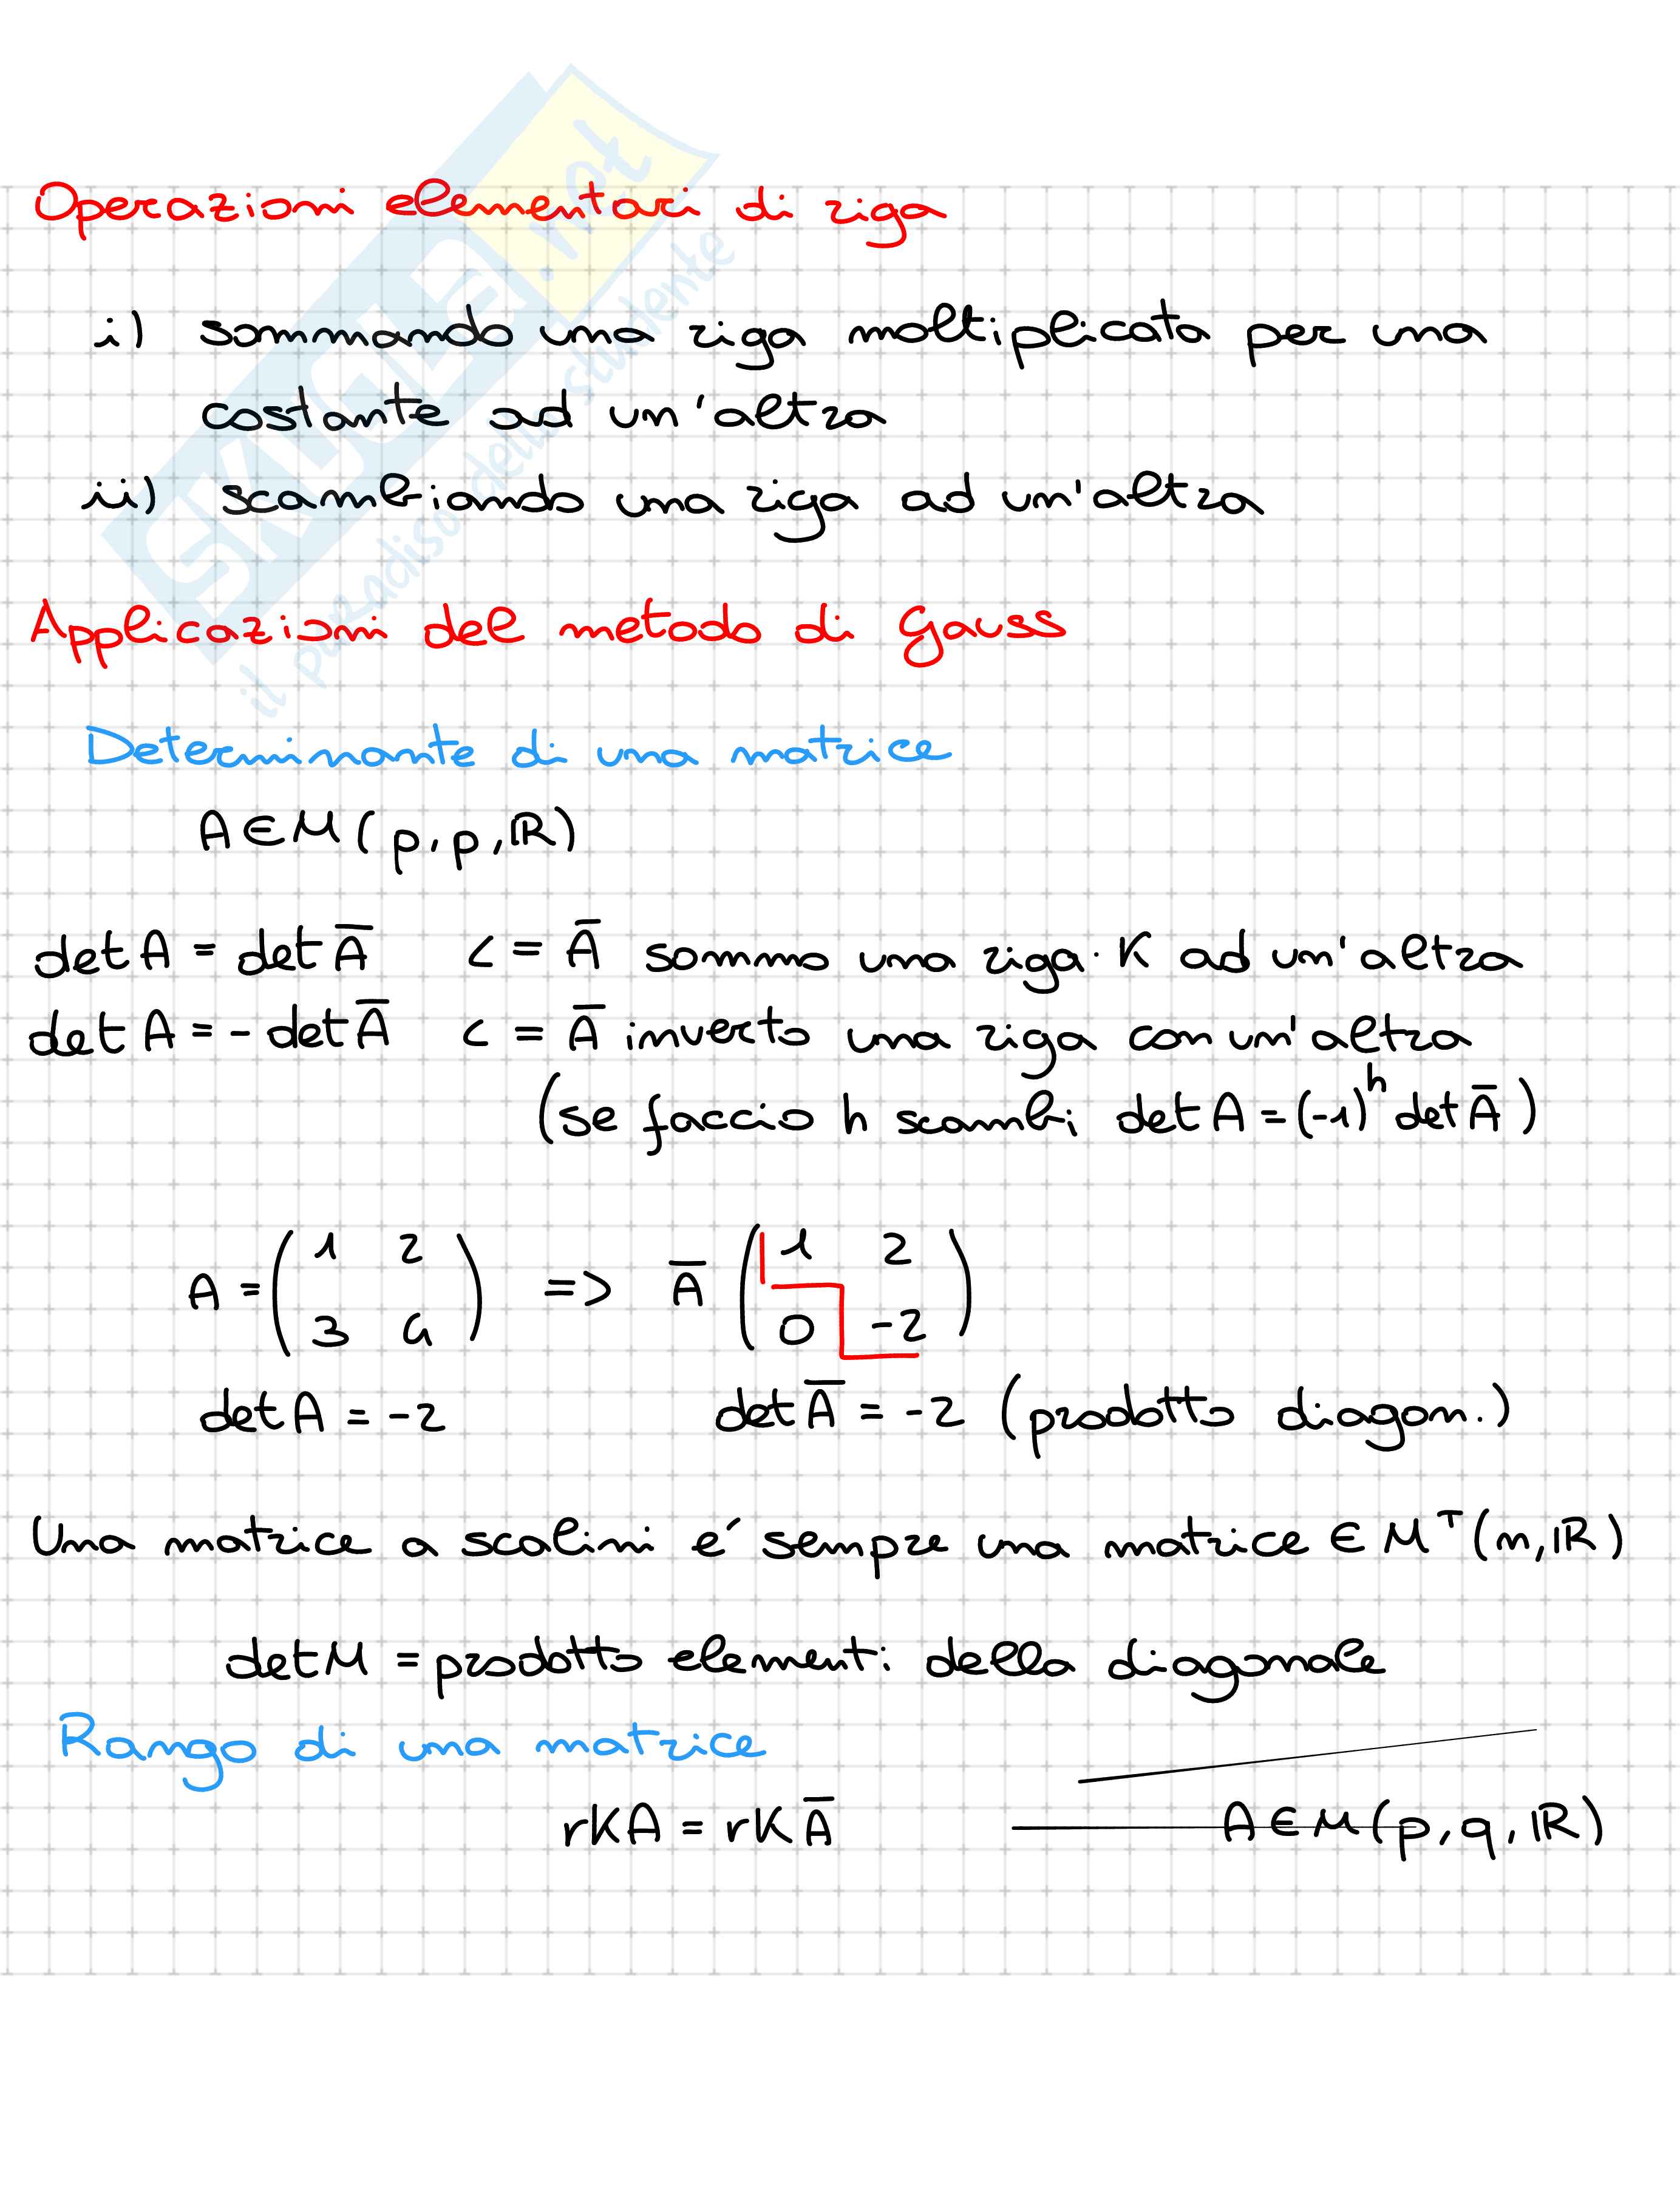 Operazioni elementari di riga
i) sommando una riga moltiplicata per una
costante ad un'altra
ii) scambiando una riga ad un'altra
Applicazioni del metodo di Gauss
Determinante di una matrice
A ∈ M (p, p, ℝ)
det A = det A̅ <= A̅ sommo una riga · K ad un'altra
det A = - det A̅ <= A̅ inverto una riga con un'altra
(se faccio h scambi det A = (-1)^h det A̅)
A = ( 1 2 ; 3 4 ) => A̅ ( 1 2 ; 0 -2 )
det A = -2 det A̅ = -2 (prodotto diagon.)
Una matrice a scalini é sempre una matrice ∈ M^T (n, ℝ)
det M = prodotto elementi della diagonale
Rango di una matrice
rK A = rK A̅ A ∈ M (p, q, ℝ)
SKUOLA.net
il paradiso dello studente